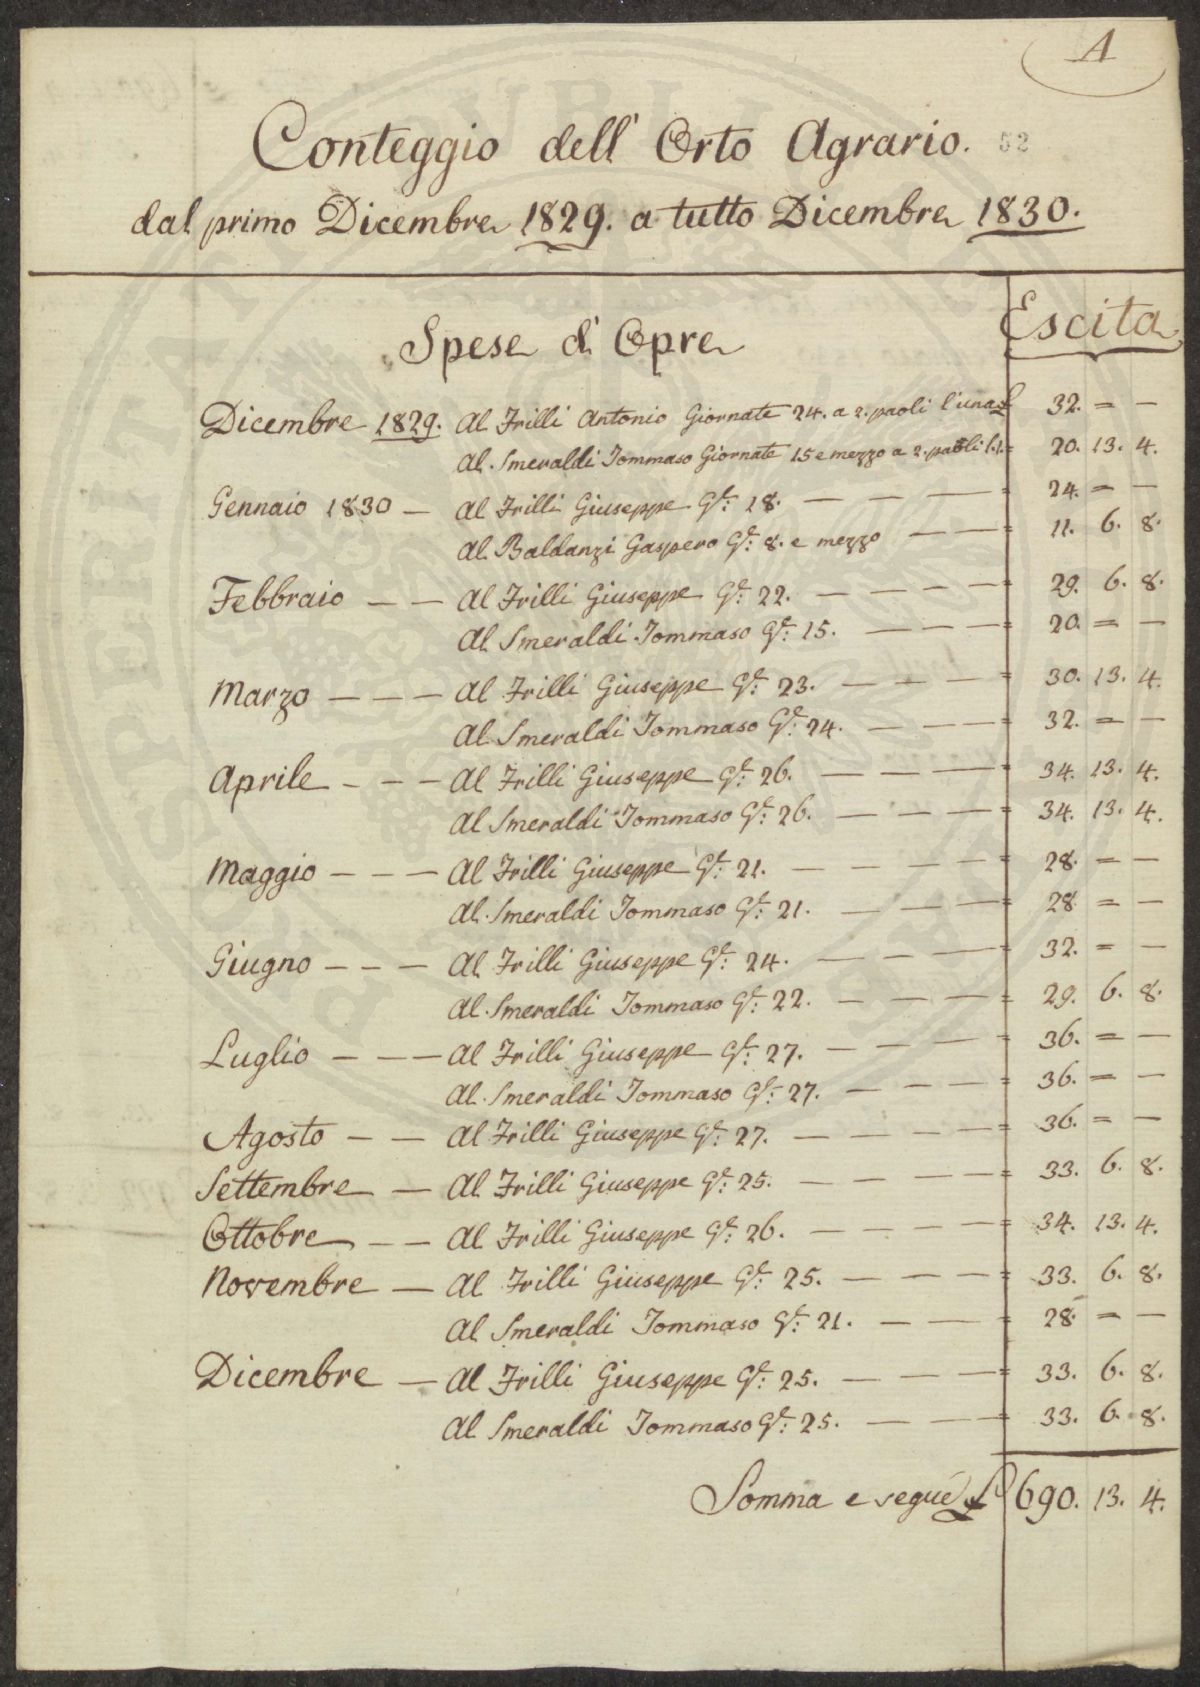 A
Conteggio dell' Orto Agrario. 52
dal primo Dicembre 1829. a tutto Dicembre 1830.
Escita
Spese d' Opre
Dicembre 1829. Al Frilli Antonio Giornate 24. a 2. paoli l'una £ 32. = —
Al Smeraldi Tommaso Giornate 15 e mezzo a 2. paoli l.1. = 20. 13. 4.
Gennaio 1830 — Al Frilli Giuseppe Gte: 18. — — — = 24. = —
Al Baldanzi Gaspero Gte: 8. e mezzo — — = 11. 6. 8.
Febbraio — — Al Frilli Giuseppe Gte: 22. — — — — = 29. 6. 8.
Al Smeraldi Tommaso Gte: 15. — — — = 20. = —
Marzo — — — Al Frilli Giuseppe Gte: 23. — — — = 30. 13. 4.
Al Smeraldi Tommaso Gte: 24. — — — = 32. = —
Aprile — — — Al Frilli Giuseppe Gte: 26. — — — — = 34. 13. 4.
Al Smeraldi Tommaso Gte: 26. — — — — = 34. 13. 4.
Maggio — — — Al Frilli Giuseppe Gte: 21. — — — — = 28. = —
Al Smeraldi Tommaso Gte: 21. — — — = 28 = —
Giugno — — — Al Frilli Giuseppe Gte: 24. — — — = 32. = —
Al Smeraldi Tommaso Gte: 22. — — — — = 29. 6. 8.
Luglio — — — Al Frilli Giuseppe Gte: 27. — — — — = 36. = —
Al Smeraldi Tommaso Gte: 27. — — — — = 36. = —
Agosto — — Al Frilli Giuseppe Gte: 27. — — — — = 36. = —
Settembre — Al Frilli Giuseppe Gte: 25. — — — — = 33. 6. 8.
Ottobre — — Al Frilli Giuseppe Gte: 26. — — — — = 34. 13. 4.
Novembre — Al Frilli Giuseppe Gte: 25. — — — — = 33. 6. 8.
Al Smeraldi Tommaso Gte: 21. — — — = 28. = —
Dicembre — Al Frilli Giuseppe Gte: 25. — — — — = 33. 6. 8.
Al Smeraldi Tommaso Gte: 25. — — — = 33. 6. 8.
Somma e segue £ 690. 13. 4.